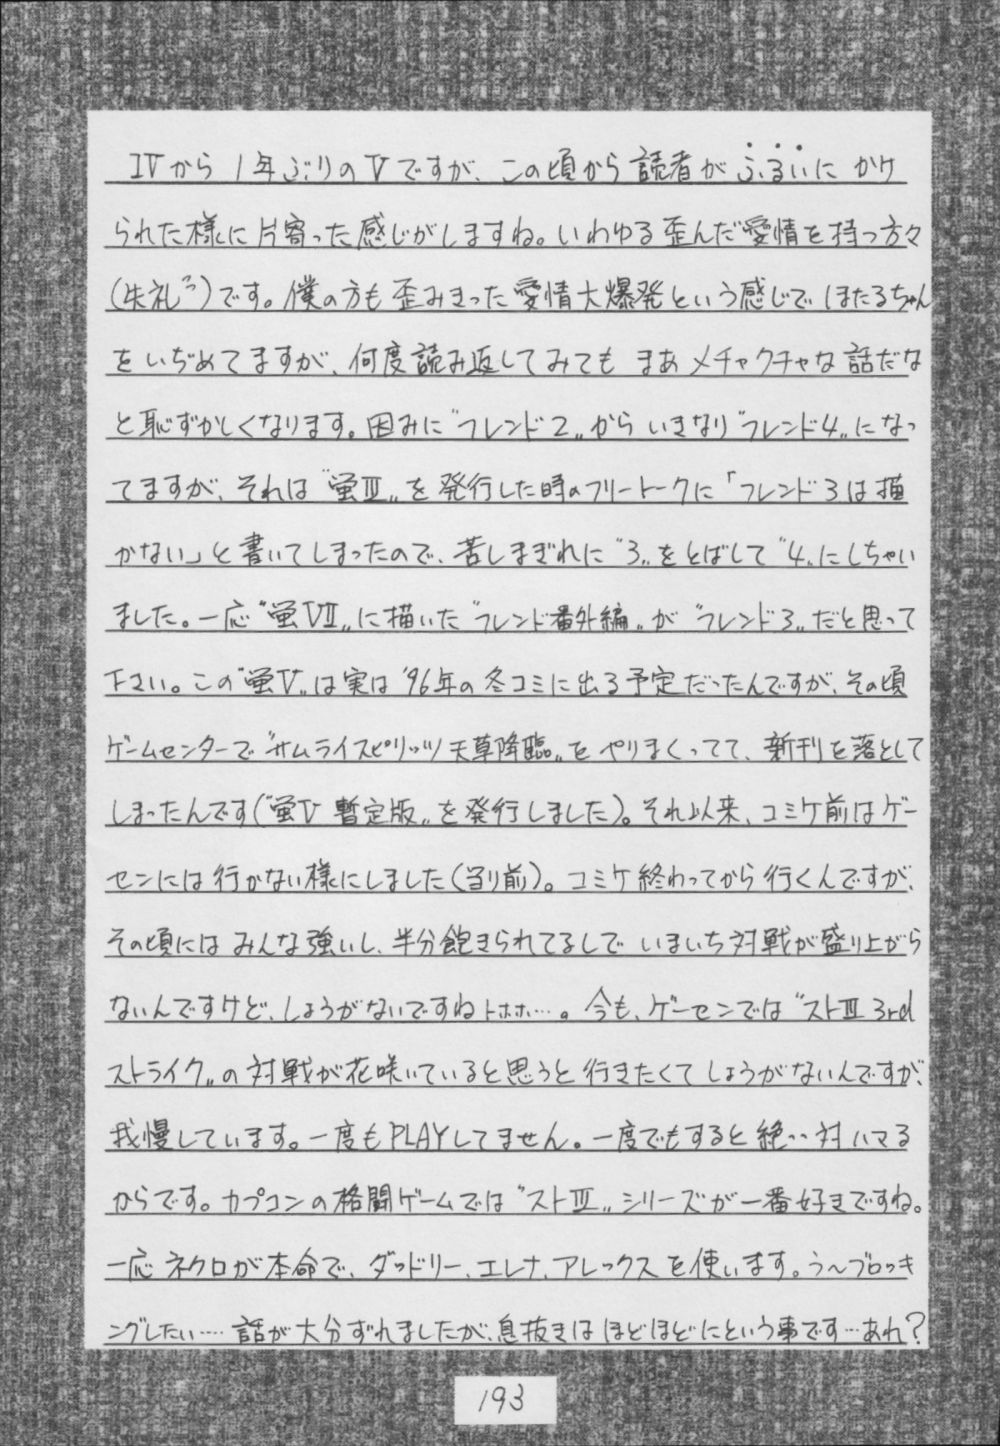 IVから1年ぶりのVですが、この頃から読者がふるいにかけ
られた様に片寄った感じがしますね。いわゆる歪んだ愛情を持つ方々
(失礼ッ)です。僕の方も歪みきった愛情大爆発という感じでほたるちゃん
をいぢめてますが、何度読み返してみてもまあメチャクチャな話だな
と恥ずかしくなります。因みに〝フレンド2〟からいきなり〝フレンド4〟になっ
てますが、それは〝蛍III〟を発行した時のフリートークに「フレンド3は描
かない」と書いてしまったので、苦しまぎれに〝3〟をとばして〝4〟にしちゃい
ました。一応〝蛍VII〟に描いた〝フレンド番外編〟が〝フレンド3〟だと思って
下さい。この〝蛍V〟は実は'96年の冬コミに出る予定だったんですが、その頃
ゲームセンターで〝サムライスピリッツ天草降臨〟をやりまくってて、新刊を落として
しまったんです(〝蛍V 暫定版〟を発行しました)。それ以来、コミケ前はゲー
センには行かない様にしました(当り前)。コミケ終わってから行くんですが、
その頃にはみんな強いし、半分飽きられてるしでいまいち対戦が盛り上がら
ないんですけど、しょうがないですねトホホ…。今も、ゲーセンでは〝ストIII 3rd
ストライク〟の対戦が花咲いていると思うと行きたくてしょうがないんですが、
我慢しています。一度もPLAYしてません。一度でもすると絶ッ対ハマる
からです。カプコンの格闘ゲームでは〝ストIII〟シリーズが一番好きですね。
一応ネクロが本命で、ダッドリー、エレナ、アレックスを使います。う～ブロッキ
ングしたい…… 話が大分ずれましたが、息抜きはほどほどにという事です…あれ?
193